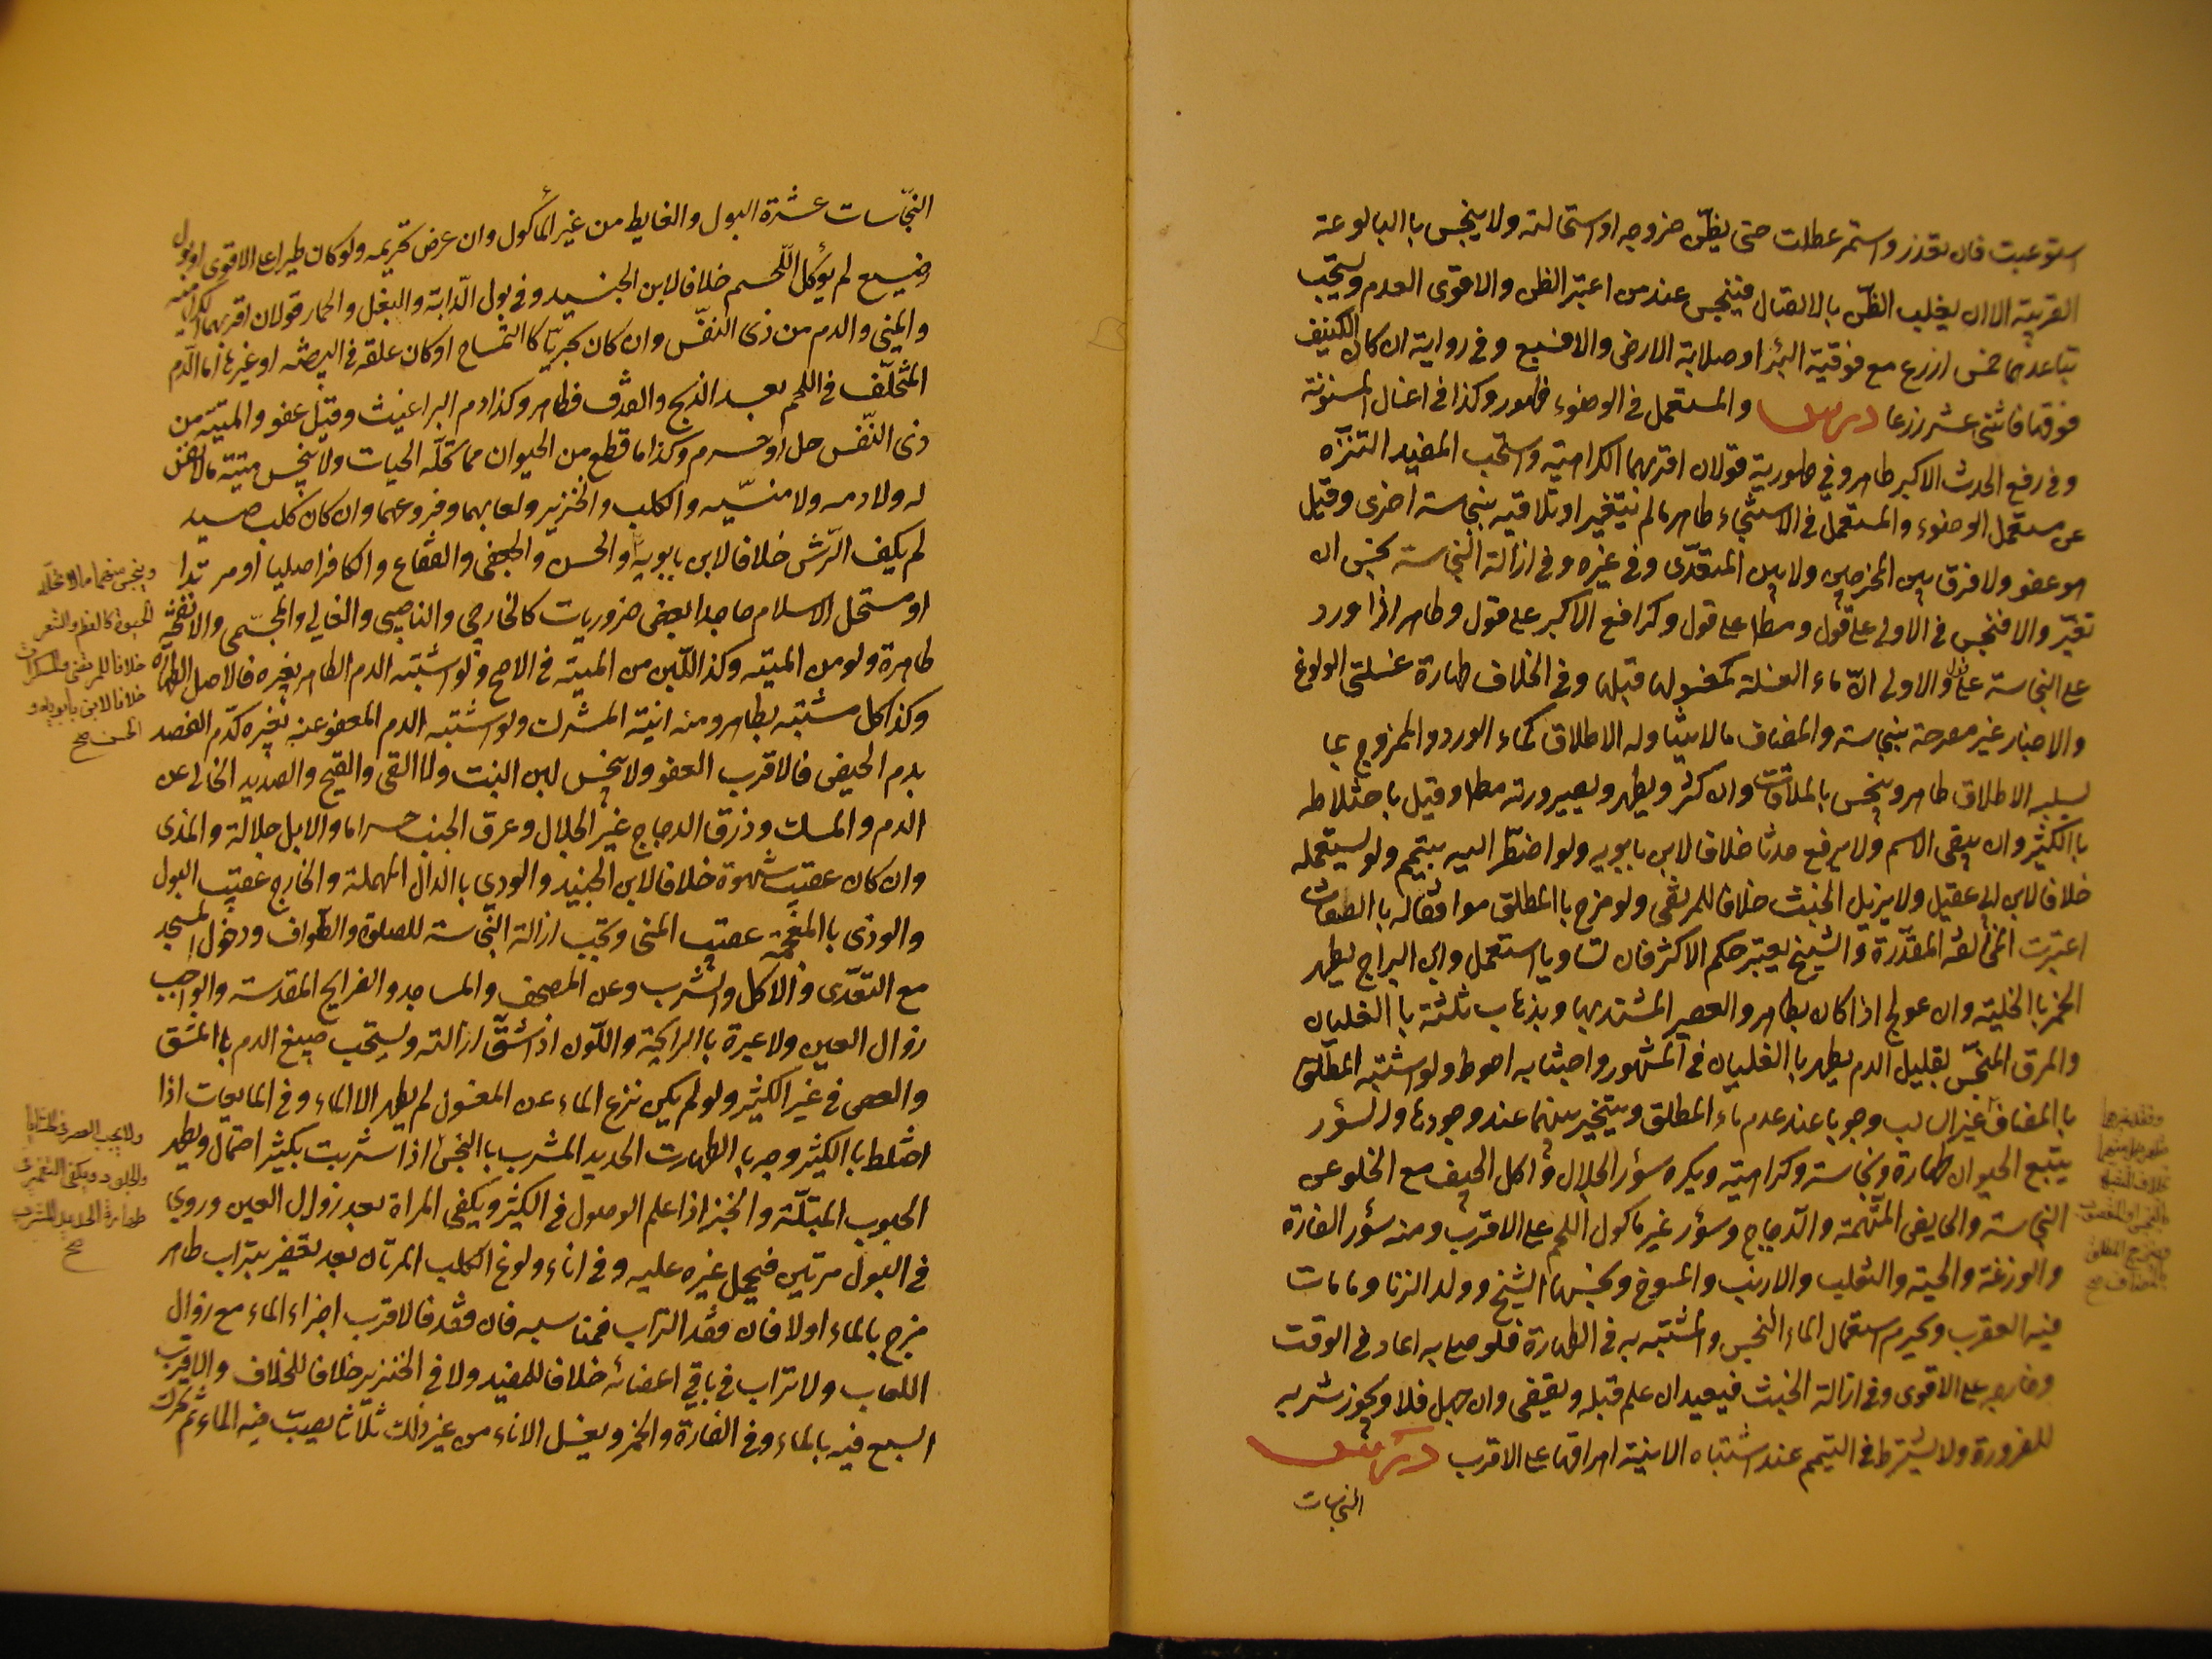 استوعبت فان تعذر واستمر عطلت حتى يظن خروجه او استحالته ولا ينجس باالبالوعة
القريبة الا ان يغلب الظن بالاتصال فينجس عند من اعتبر الظن والاقوى العدم ويستحب
تباعدهما خمس اذرع مع فوقية البئر او صلابة الارض والا فسبع وفي رواية ان كان الكنيف
فوقها فاثنى عشر ذرعا درس والمستعمل في الوضوء طهور وكذا في اغسال المسنونة
وفي رفع الحدث الاكبر طاهر وفي طهورية قولان اقربهما الكراهية واستحب المفيد التنزه
عن مستعمل الوضوء والمستعمل في الاستنجاء طاهر ما لم يتغير او تلاقيه نجاسة اخرى وقيل
هو عفو ولا فرق بين المخرجين ولا بين المتعدى وغيره وفي ازالة النجاسة نجس ان
تغير والا فنجس في الاولى على قول ومطا على قول وكرافع الاكبر على قول وطاهر اذا ورد
على النجاسة على قول والاولى ان ماء الغسلة كمغسولها قبلها وفي الخلاف طهارة غسلتى الولوغ
والاخبار غير مصرحة بنجاسته والمضاف ما لا يتناوله الاطلاق كماء الورد والممزوج بما
يسلبه الاطلاق طاهر وينجس بالملاقات وان كثر ويطهر وبصيرورته مطا وقيل باختلاطه
باالكثير وان بقى الاسم ولا يرفع حدثا خلافا لابن بابويه ولو اضطر اليه يتيمم ولو يستعمله
خلافا لابن ابى عقيل ولا يزيل الخبث خلافا للمرتضى ولو مزج باالمطلق موافقا له باالصفات
اعتبرت المخالفة المقدرة والشيخ يعتبر حكم الاكثر فان تساويا استعمل وابن البراج يطهر
الخمر باالخلية وان عولج اذا كان بطاهر والعصير المشتد بها وبذهاب ثلثيه باالغليان
والمرق المنجس بقليل الدم يطهر باالغليان في المشهور واجتنابه احوط ولو اشتبه المطلق
باالمضاف غير السالب وجوبا عند عدم ماء المطلق ويتخير بينهما عند وجودها والسؤر
يتبع الحيوان طهارة ونجاسة وكراهية ويكره سؤر الجلال واكل الجيف مع الخلو عن
النجاسة والحايض المتهمة والدجاج وسؤر غير ماكول اللحم على الاقرب ومنه سؤر الفارة
والوزغة والحية والثعلب والارنب والمسوخ ونجسها الشيخ وولد الزنا وما مات
فيه العقرب ويحرم استعمال الماء النجس والمشتبه به في الطهارة فلو صلى به اعاد في الوقت
وخارجه على الاقوى وفي ازالة الخبث فيعيد ان علم قبله ويقضى وان جهل فلا ويجوز شربه
للضرورة ولا يشترط في التيمم عند اشتباه الانية اهراقها على الاقرب درس
النجاسات
النجاسات عشرة البول والغايط من غير المأكول وان عرض تحريمه ولو كان طيرا على الاقوى او بول
رضيع لم يؤكل اللحم خلافا لابن الجنيد وفي بول الدابة والبغل والحمار قولان اقربهما الكراهية
والمنى والدم من ذى النفس وان كان بحريا كاالتمساح او كان علقه في البيضة او غيرها اما الدم
المتخلف في اللحم بعد الذبح والقذف فطاهر وكذا دم البراغيث وقيل عفو والميتة من
ذى النفس حل او حرم وكذا ما قطع من الحيوان مما تحله الحيات ولا ينجس ميتة ما لا نفس
له ولا دمه ولا منيه والكلب والخنزير ولعابهما وفروعهما وان كان كلب صيد
لم يكف الرش خلافا لابن بابويه او الحسن والجعفى والفقاع والكافر اصليا او مرتدا
او منتحل الاسلام جاحدا بعض ضروريات كالخارجى والناصبى والغالى والمجسمى والانفحة
طاهرة ولو من الميته وكذا اللبن من الميتة في الاصح ولو اشتبه الدم الطاهر بغيره فالاصل الطهارة
وكذا كل مشتبه بطاهر ومنه انية المشرك ولو اشتبه الدم المعفو عنه بغيره كدم الفصد
بدم الحيض فالاقرب العفو ولا ينجس لبن البنت ولا القى والقيح والصديد الخالى عن
الدم والمسك وذرق الدجاج غير الجلال وعرق الجنب حراما والابل جلالة والمذى
وان كان عقيب شهوة خلافا لابن الجنيد والودى باالدال المهملة والخارج عقيب البول
والوذى باالمعجمة عقيب المنى وتجب ازالة النجاسة للصلوة والطواف ودخول المسجد
مع التعدى والاكل والشرب وعن المصحف والمساجد والضرايح المقدسة والواجب
زوال العين ولا عبرة باالرايحة واللون اذ شق ازالته ويستحب صبغ الدم باالمشق
والعصر في غير الكثير ولو لم يكن نزع الماء عن المغسول لم يطهر الا الماء وفي المايعات اذا
اختلط باالكثير وجه باالطهارت الحديد المشرب باالنجس اذا شربت بكثير احتمال ويطهر
الحبوب المبتلة والخبز اذا علم الوصول في الكثير ويكفى المراة بعد زوال العين وروى
في البول مرتين فيحمل غيره عليه وفي اناء ولوغ الكلب المرتان بعد تعفير بتراب طاهر
مزج بالماء اولا فان فقد التراب فمناسبه فان فقد فالاقرب اجزاء الماء مع زوال
اللعاب ولا تراب في باقى اعضائه خلافا للمفيد ولا في الخنزير خلافا للخلاف والاقرب
السبع فيه بالماء وفي الفارة والخمر ويغسل الاناء من غير ذلك ثلاثا يصب فيه الماء ثم يحرك
وينجس منهما ما لا تحله
الحيوة كالعظم والشعر
خلافا للمرتضى والمسكرات
خلافا لابن بابويه و
الحسن صح
ولا يجب العصر في
والجلود ويكفى التغمير
طهارة الحديد المشرب
صح